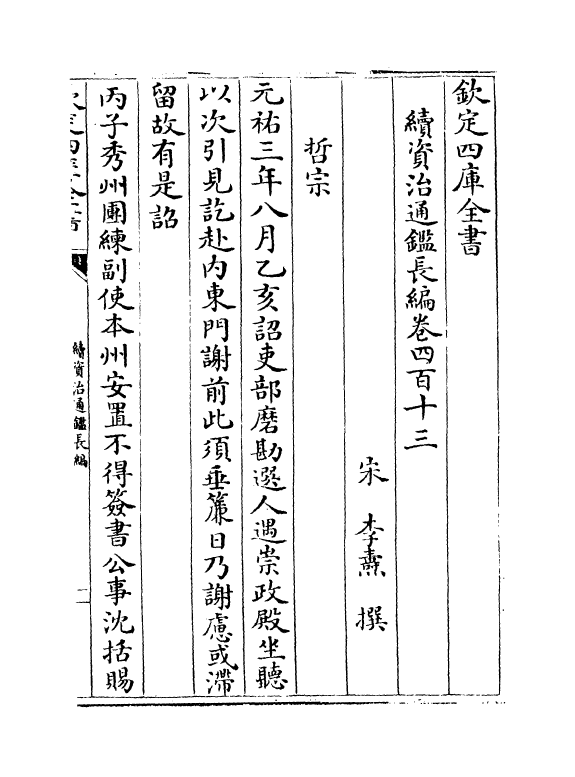 欽定四庫全書
續資治通鑑長編卷四百十三
宋 李燾 撰
哲宗
元祐三年八月乙亥詔吏部磨勘選人遇崇政殿坐聽
以次引見訖赴内東門謝前此須垂簾日乃謝慮或滯
留故有是詔
丙子秀州團練副使本州安置不得簽書公事沈括賜
欽定四庫全書
續資治通鑑長編